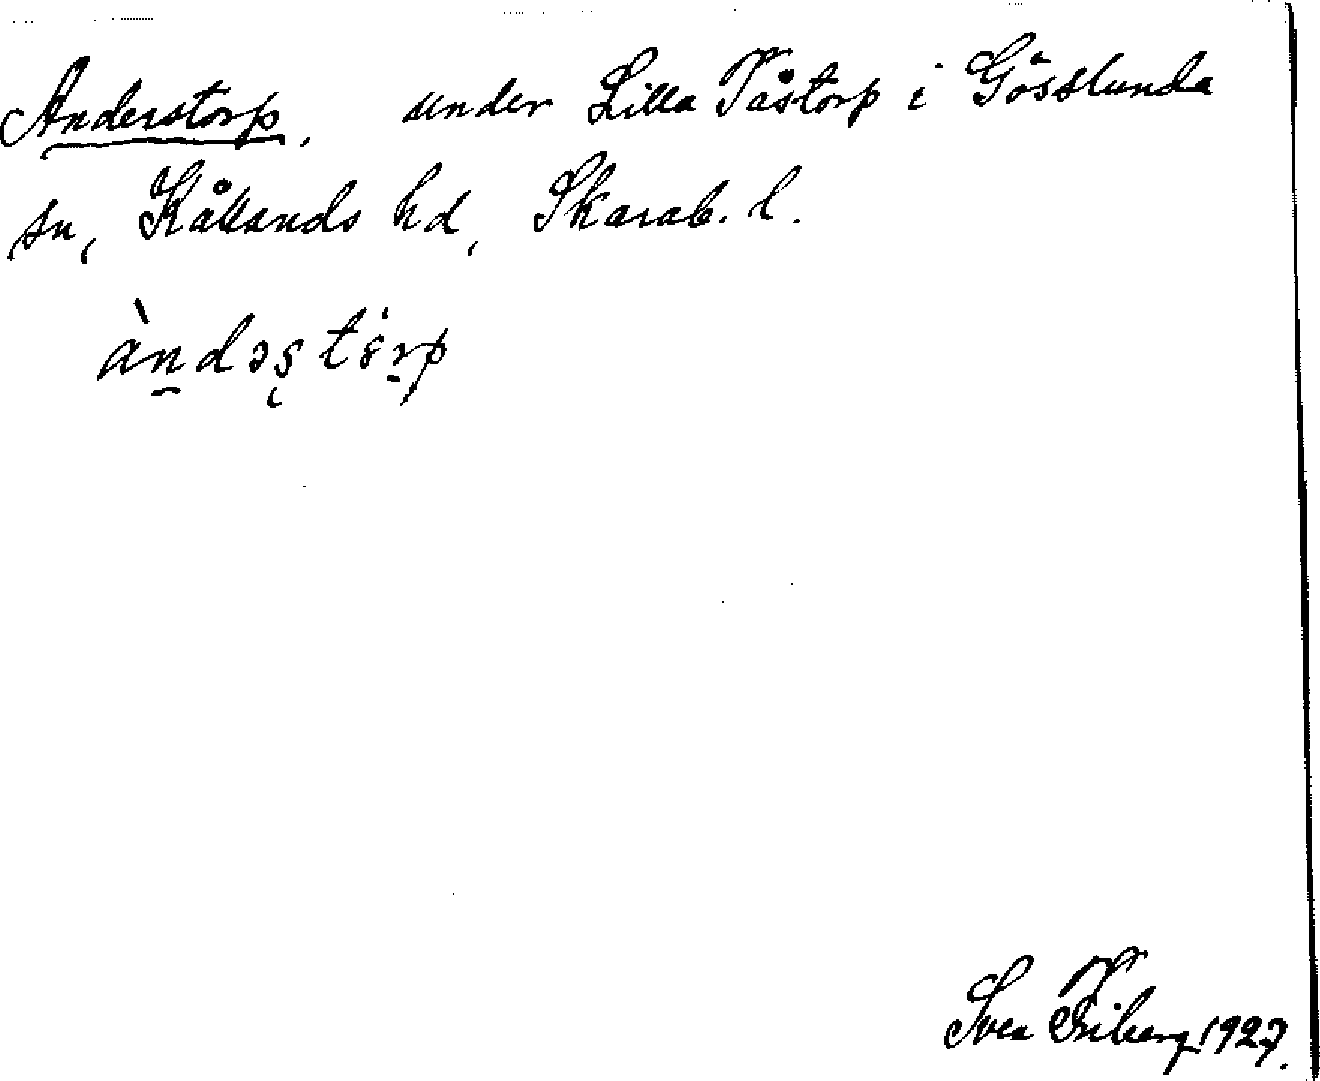 Anderstorp, under Lilla Tåstorp i Gösslunda
sn, Kållands hd, Skarab. l.
àndəs tɵ́rp
Svea Friberg 1927.